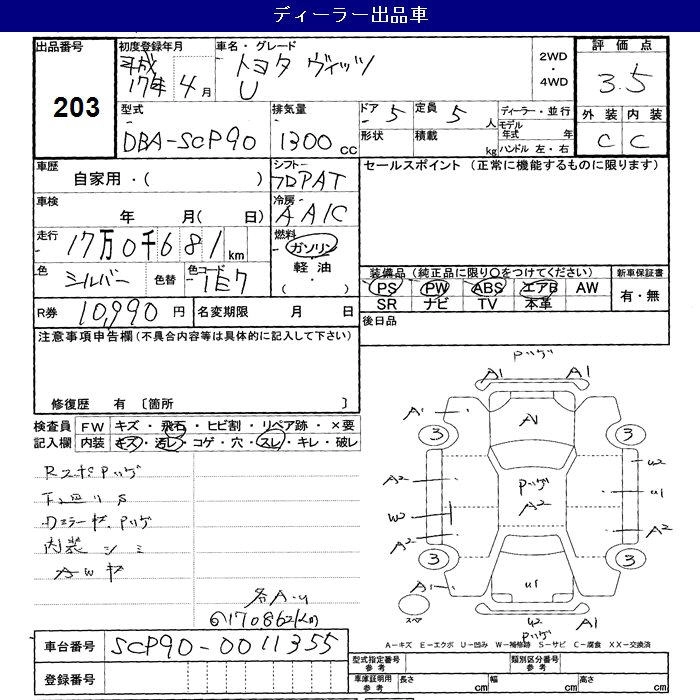 ディーラー出品車
出品番号
203
初度登録年月
平成
17年 4月
車名・グレード
トヨタ ヴィッツ
U
2WD
・
4WD
評価点
3.5
外装 内装
C C
型式
DBA-SCP90
排気量
1300 cc
ドア 5
定員 5 人
形状
積載 kg
ディーラー・並行
モデル年式 年
ハンドル 左・右
車歴
自家用・( )
シフト
フロアAT
セールスポイント (正常に機能するものに限ります)
車検
年 月( 日)
冷房
AAC
走行
17万0千681km
燃料
ガソリン
・
軽油
・
( )
色
シルバー
色替
色コード
1E7
装備品 (純正品に限り○をつけてください)
PS PW ABS エアB AW
SR ナビ TV 本革
新車保証書
有・無
R券
10,990 円
名変期限 月 日
後日品
注意事項申告欄 (不具合内容等は具体的に記入して下さい)
修復歴 有 〔箇所 〕
検査員 FW キズ・飛石・ヒビ割・リペア跡・×要
記入欄 内装 キズ・汚レ・コゲ・穴・スレ・キレ・破レ
下廻りS
内装シミ
AWキズ
各A.U
170862km
車台番号
SCP90-0011355
登録番号
Pハゲ
A1 A1
A1
A1
3 3
A2
U2
Pハゲ
A2
U1
W2
A2
A2
3 3
A1
U1
スペア
W2
Pハゲ
A1
A=キズ E=エクボ U=凹み W=補修跡 S=サビ C=腐食 XX=交換済
型式指定番号
参考
類別区分番号
参考
車庫証明用
参考
長さ cm
幅 cm
高さ cm